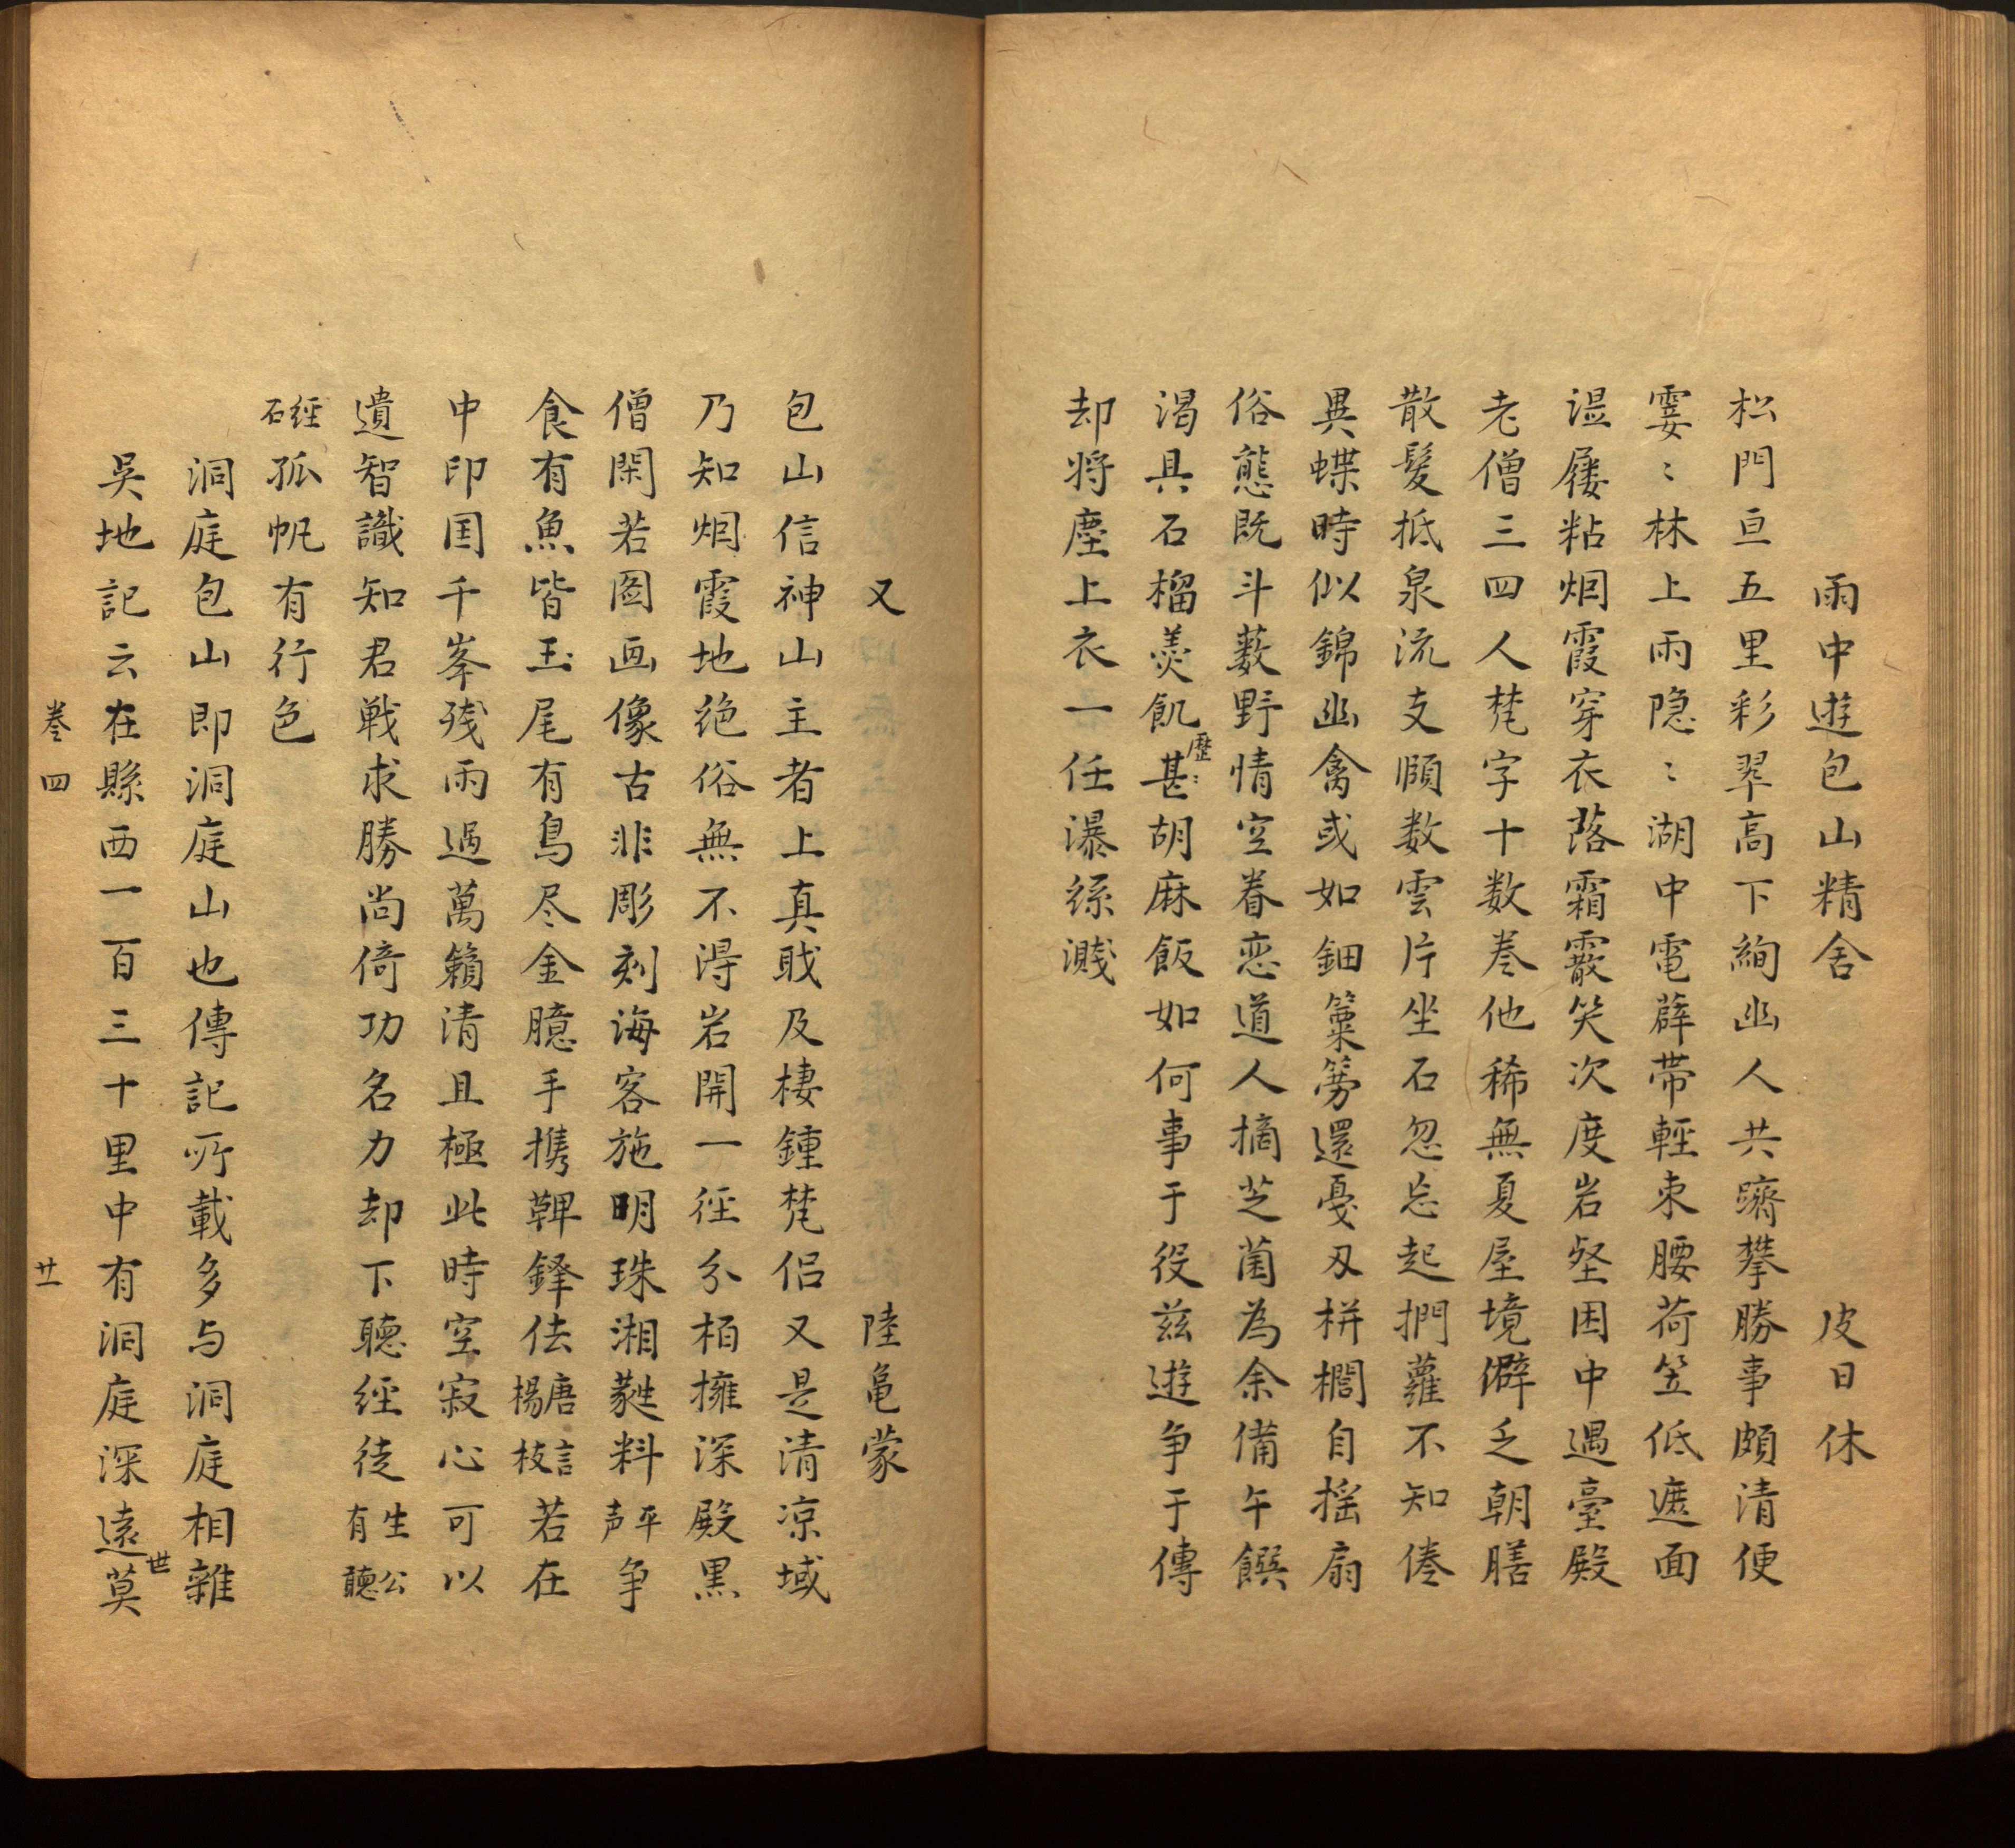 雨中遊包山精舍　皮日休
松門亘五里彩翠高下絢幽人共躋攀勝事頗清便
霎〻林上雨隐〻湖中電薜帯輕束腰荷笠低遮面
湿屨粘烟霞穿衣落霜霰笑次度岩壑困中遇臺殿
老僧三四人梵字十数巻他稀無夏屋境僻乏朝膳
散髮抵泉流支頤数雲片坐石忽忘起捫蘿不知倦
異蝶時似錦幽禽或如鈿篥簩還戛刄栟櫚自揺扇
俗態既斗藪野情空眷恋道人摘芝菌為余備午饌
渴具石榴羹飢歷〻甚胡麻飯如何事于役茲遊争于傳
却将塵上衣一任瀑絲濺
又　陸亀蒙
包山信神山主者上真戝及棲鍾梵侣又是清凉域
乃知烟霞地绝俗無不淂岩開一徑分柏擁深殿黒
僧閑若圖画像古非彫刻海客施明珠湘蕤料平声争
食有魚皆玉尾有鳥尽金臆手携鞞鐸佉唐言楊枝若在
中印国千峯殘雨過萬籟清且極此時空寂心可以
遺智識知君戦求勝尚倚功名力却下聴经徒生公有聽
經石孤帆有行色
洞庭包山即洞庭山也傳記所載多与洞庭相雜
吳地記云在縣西一百三十里中有洞庭深遠世莫
巻四　廿一